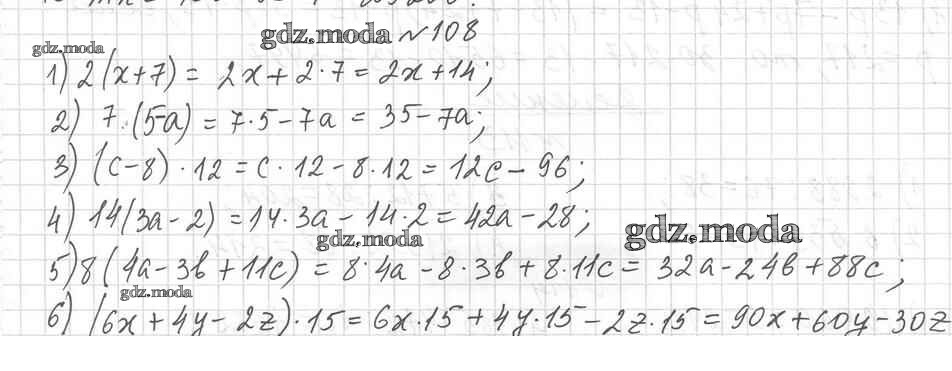 gdz.moda №108
gdz.moda
1) 2(x+7) = 2x+2·7 = 2x+14;
2) 7·(5-a) = 7·5-7a = 35-7a;
3) (c-8)·12 = c·12-8·12 = 12c-96;
4) 14(3a-2) = 14·3a-14·2 = 42a-28;
gdz.moda gdz.moda
5) 8(4a-3b+11c) = 8·4a-8·3b+8·11c = 32a-24b+88c;
gdz.moda
6) (6x+4y-2z)·15 = 6x·15+4y·15-2z·15 = 90x+60y-30z